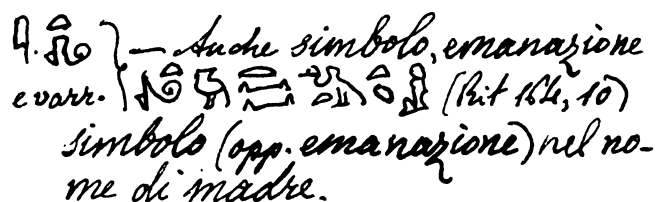 — Anche simbolo, emanazione
e varr. (Rit 164, 10)
simbolo (opp. emanazione) nel no-
me di madre.